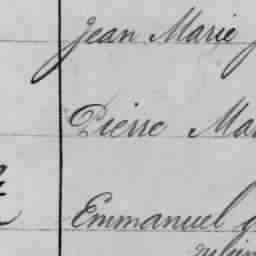 Jean Marie
Pierre Ma
Emmanuel